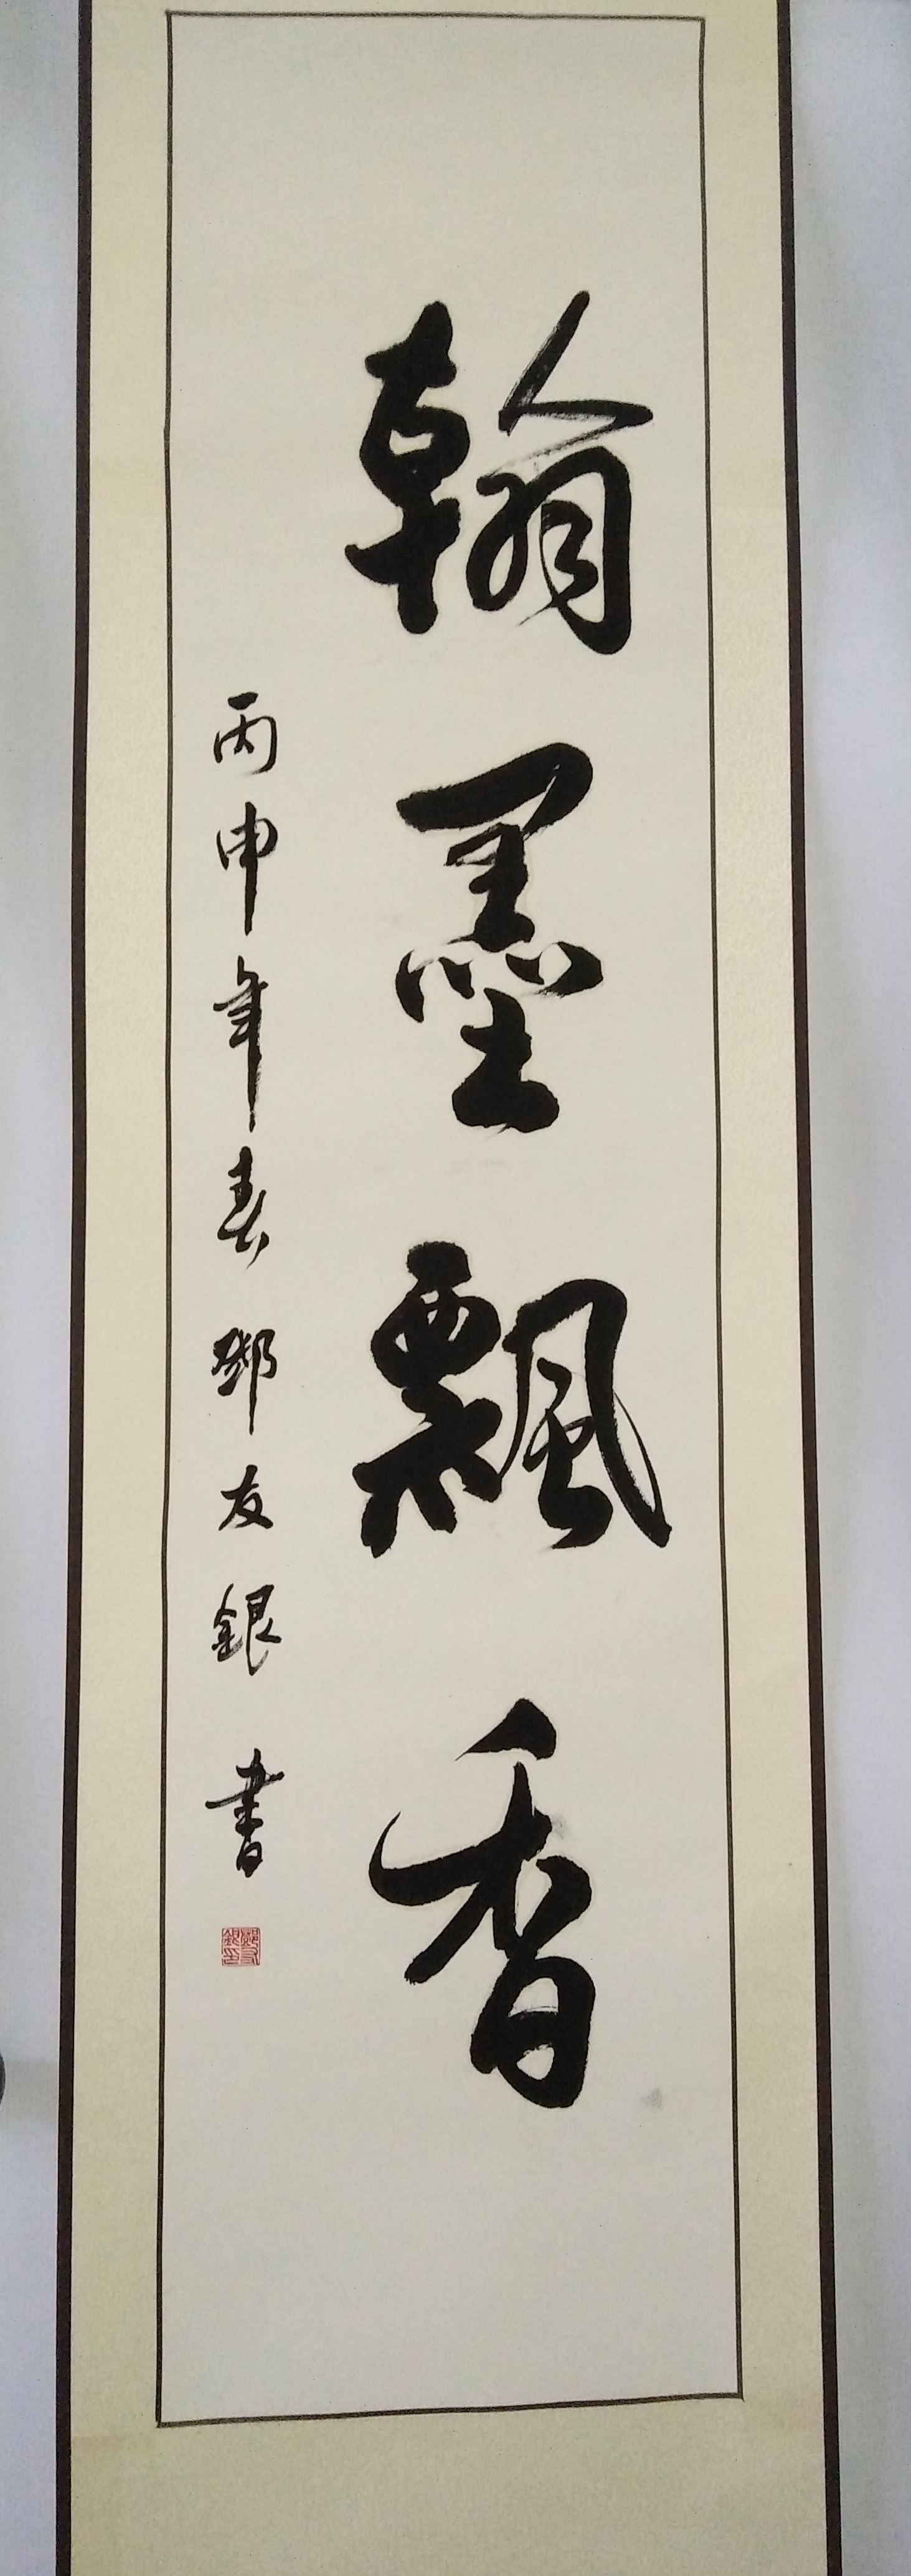 翰墨飄香
丙申年春鄧友銀書